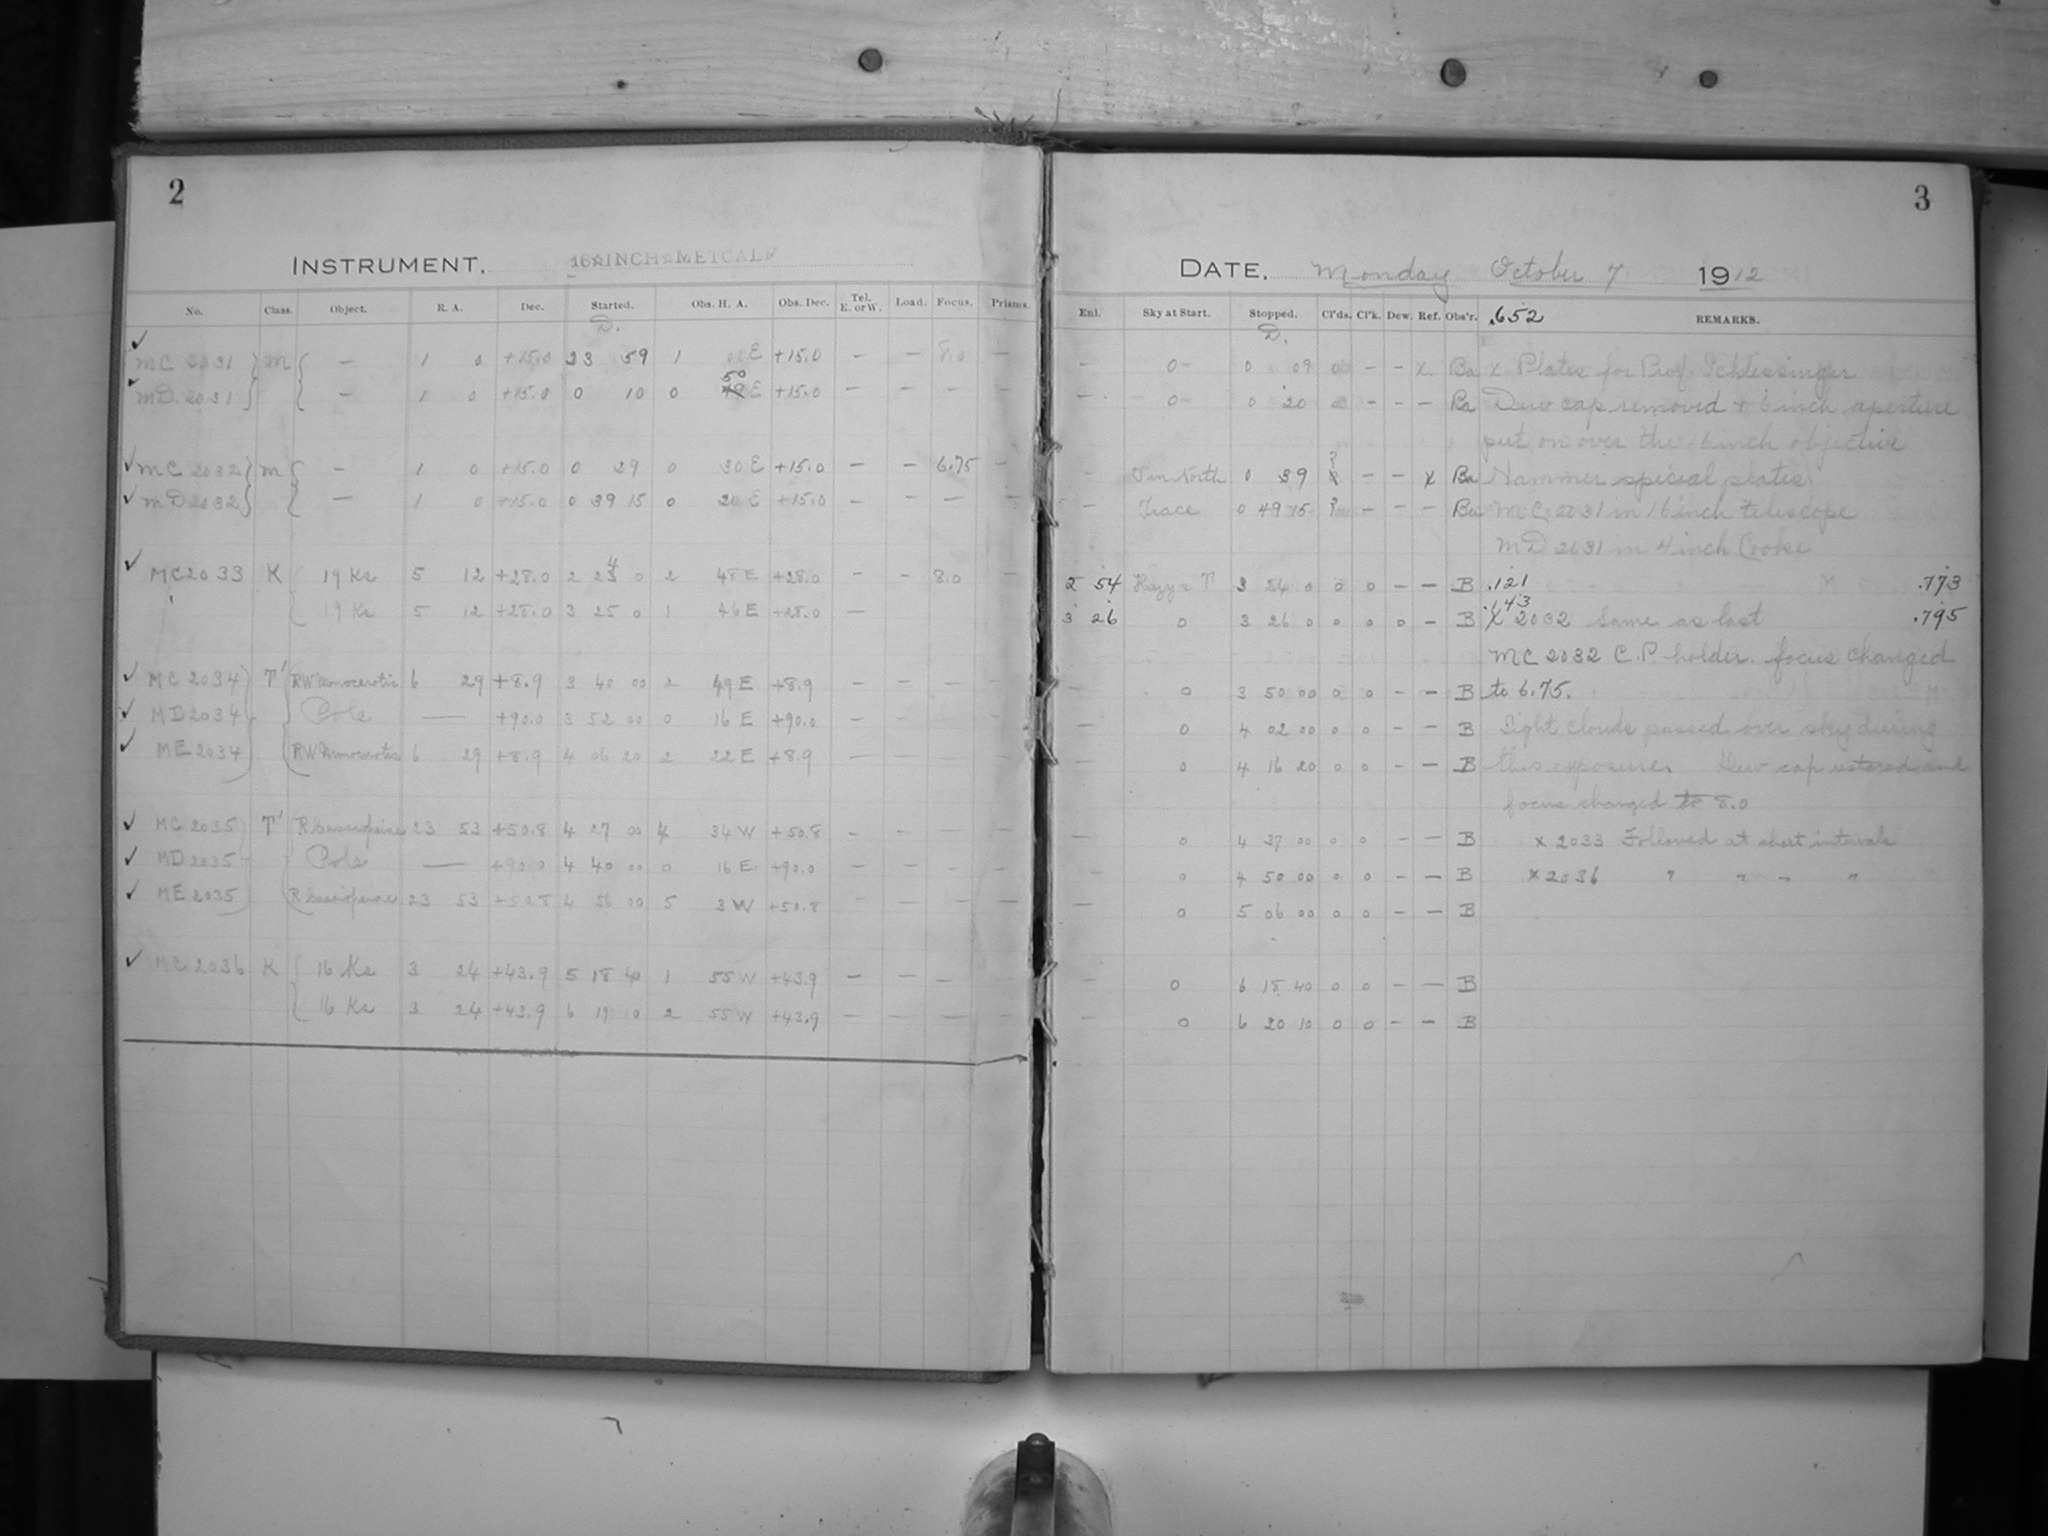 2
INSTRUMENT. 16☆INCH☆METCALF
No. Class. Object. R. A. Dec. Started. Obs. H. A. Obs. Dec. Tel. E. or W. Load. Focus. Prisms.
D.
✓ MC 2031 M — 1 0 +15.0 23 59 1 E +15.0 — — 8.0 —
✓ MD 2031 — 1 0 +15.0 0 10 0 50 E +15.0 — — — —
✓ MC 2032 M — 1 0 +15.0 0 29 0 30 E +15.0 — — 6.75 —
✓ MD 2032 — 1 0 +15.0 0 39 15 0 20 E +15.0 — — — —
✓ MC 2033 K 19 Ks 5 12 +28.0 2 24 0 2 48 E +28.0 — — 8.0 —
19 Ks 5 12 +28.0 3 25 0 1 46 E +28.0 —
✓ MC 2034 T' RW Monocerotis 6 29 +8.9 3 40 00 2 49 E +8.9 — — — —
✓ MD 2034 Pole — +90.0 3 52 00 0 16 E +90.0 — — — —
✓ ME 2034 RW Monocerotis 6 29 +8.9 4 06 20 2 22 E +8.9 — — — —
✓ MC 2035 T' R Cassiopeiae 23 53 +50.8 4 27 00 4 34 W +50.8 — — — —
✓ MD 2035 Pole — +90.0 4 40 00 0 16 E +90.0 — — — —
✓ ME 2035 R Cassiopeiae 23 53 +50.8 4 56 00 5 3 W +50.8 — — — —
✓ MC 2036 K 16 Ks 3 24 +43.9 5 18 40 1 55 W +43.9 — — — —
16 Ks 3 24 +43.9 6 19 10 2 55 W +43.9 — — — —
3
DATE. Monday October 7 1912
Enl. Sky at Start. Stopped. Cl'ds. Cl'k. Dew. Ref. Obs'r. .652 REMARKS.
D.
— 0 0 09 0 — — x Ba x Plates for Prof. Schlessinger
— 0 0 20 — — — Ba Dew cap removed & 6 inch aperture
put on over the 16 inch objective
— North 0 39 ? x — — x Ba Hammer special plates
— Trace 0 49 15 ? — — — Ba MC 2031 in 16 inch telescope
MD 2031 in 4 inch Cooke
2 54 Hazy 3 24 0 0 0 — — B .121 .773
3 26 0 3 26 0 0 0 0 — B .143 x 2032 Same as last .795
MC 2032 C.P. holder. focus changed
— 0 3 50 00 0 0 — — B to 6.75.
— 0 4 02 00 0 0 — — B Light clouds passed over sky during
0 4 16 20 0 0 — — B this exposure. Dew cap restored and
focus changed to 8.0
— 0 4 37 00 0 0 — — B x 2033 Followed at short intervals
— 0 4 50 00 0 0 — — B x 2036 " " " "
— 0 5 06 00 0 0 — — B
— 0 6 18 40 0 0 — — B
— 0 6 20 10 0 0 — — B